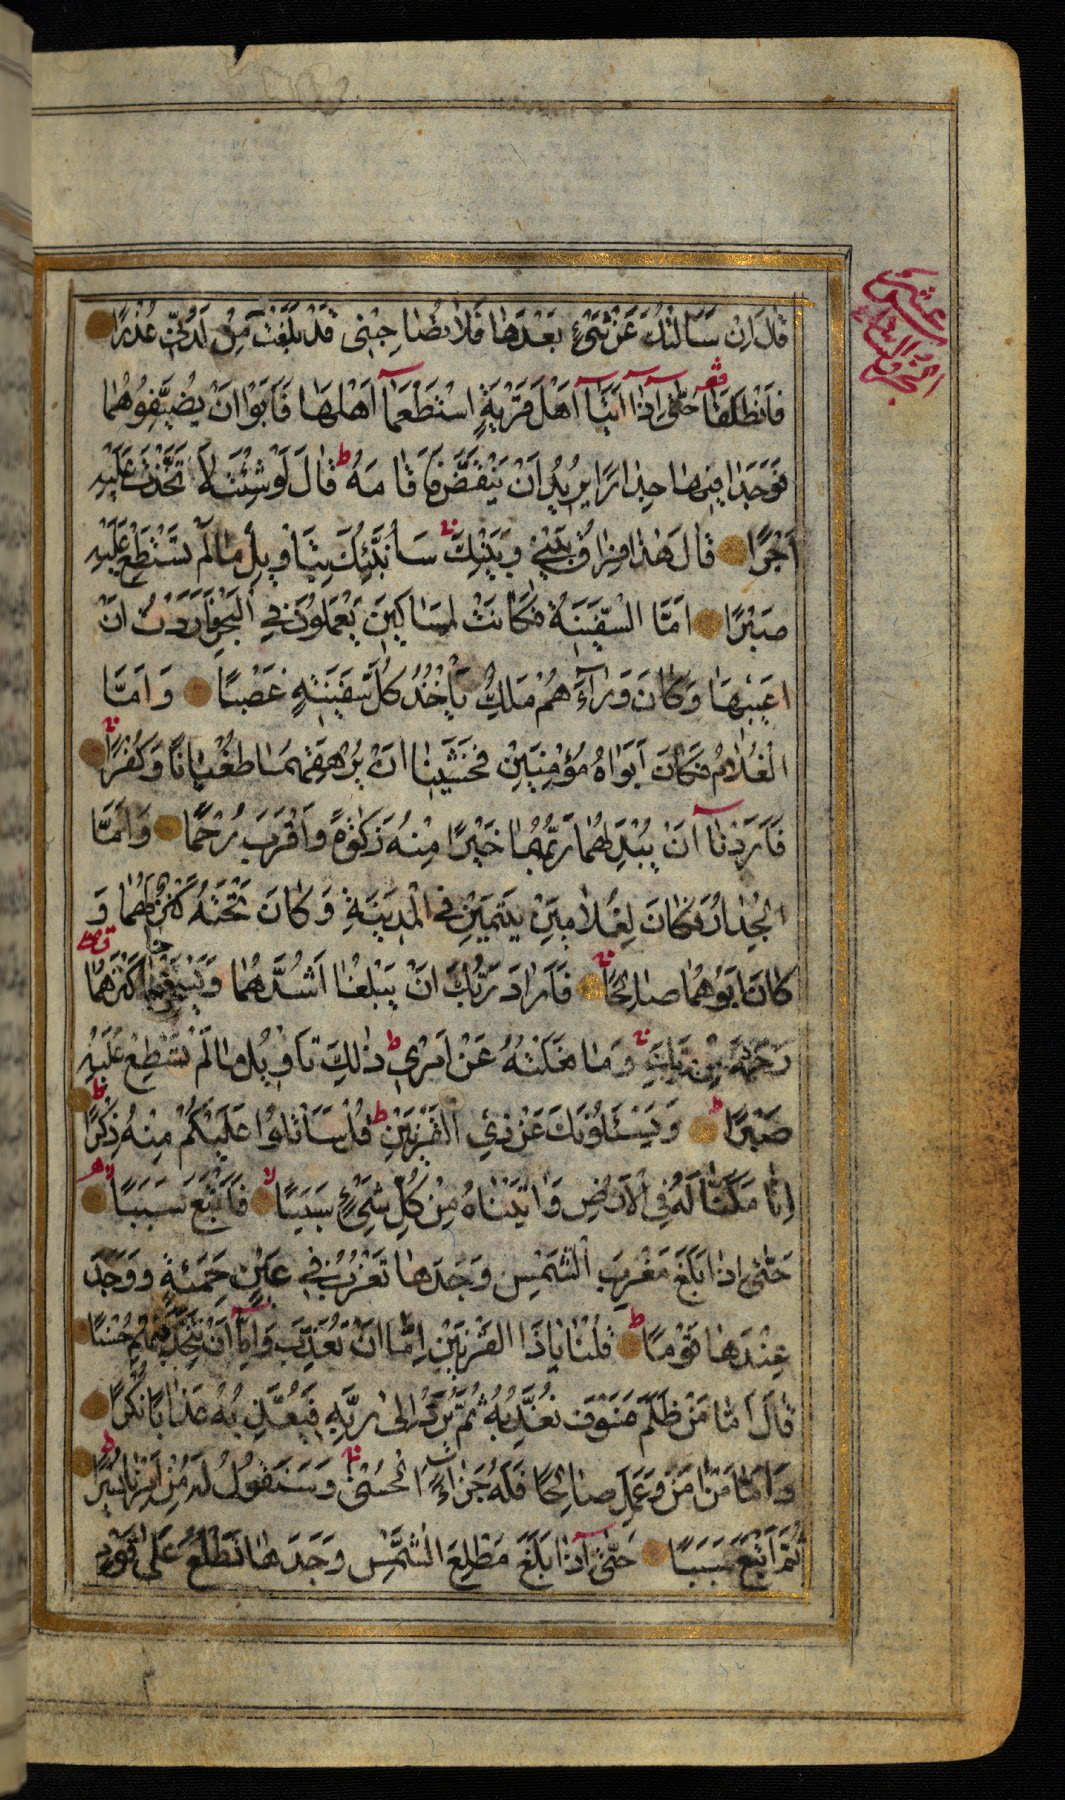 قَالَ اِنْ سَاَلْتُكَ عَنْ شَیْءٍ بَعْدَهَا فَلَا تُصَاحِبْنِی قَدْ بَلَغْتَ مِنْ لَدُنِّی عُذْرًا
فَانْطَلَقَا حَتّٰى اِذَا اَتَيَا اَهْلَ قَرْيَةٍ اسْتَطْعَمَا اَهْلَهَا فَاَبَوْا اَنْ يُضَيِّفُوهُمَا
فَوَجَدَا فِيهَا جِدَارًا يُرِيدُ اَنْ يَنْقَضَّ فَاَقَامَهُ ط قَالَ لَوْ شِئْتَ لَاتَّخَذْتَ عَلَيْهِ
اَجْرًا قَالَ هٰذَا فِرَاقُ بَيْنِی وَبَيْنِكَ سَاُنَبِّئُكَ بِتَاْوِيلِ مَا لَمْ تَسْتَطِعْ عَلَيْهِ
صَبْرًا اَمَّا السَّفِينَةُ فَكَانَتْ لِمَسَاكِينَ يَعْمَلُونَ فِی الْبَحْرِ فَاَرَدْتُ اَنْ
اَعِيبَهَا وَكَانَ وَرَآءَهُمْ مَلِكٌ يَاْخُذُ كُلَّ سَفِينَةٍ غَصْبًا وَاَمَّا
الْغُلَامُ فَكَانَ اَبَوَاهُ مُؤْمِنَيْنِ فَخَشِينَا اَنْ يُرْهِقَهُمَا طُغْيَانًا وَكُفْرًا
فَاَرَدْنَا اَنْ يُبْدِلَهُمَا رَبُّهُمَا خَيْرًا مِنْهُ زَكٰوةً وَاَقْرَبَ رُحْمًا وَاَمَّا
الْجِدَارُ فَكَانَ لِغُلَامَيْنِ يَتِيمَيْنِ فِی الْمَدِينَةِ وَكَانَ تَحْتَهُ كَنْزٌ لَهُمَا وَ
كَانَ اَبُوهُمَا صَالِحًا فَاَرَادَ رَبُّكَ اَنْ يَبْلُغَا اَشُدَّهُمَا وَيَسْتَخْرِجَا كَنْزَهُمَا
رَحْمَةً مِنْ رَبِّكَ وَمَا فَعَلْتُهُ عَنْ اَمْرِی ط ذٰلِكَ تَاْوِيلُ مَا لَمْ تَسْطِعْ عَلَيْهِ
صَبْرًا ط وَيَسْئَلُونَكَ عَنْ ذِی الْقَرْنَيْنِ ط قُلْ سَاَتْلُوا عَلَيْكُمْ مِنْهُ ذِكْرًا ط
اِنَّا مَكَّنَّا لَهُ فِی الْاَرْضِ وَاٰتَيْنَاهُ مِنْ كُلِّ شَیْءٍ سَبَبًا لا فَاَتْبَعَ سَبَبًا
حَتّٰى اِذَا بَلَغَ مَغْرِبَ الشَّمْسِ وَجَدَهَا تَغْرُبُ فِی عَيْنٍ حَمِئَةٍ وَوَجَدَ
عِنْدَهَا قَوْمًا ط قُلْنَا يَا ذَا الْقَرْنَيْنِ اِمَّا اَنْ تُعَذِّبَ وَاِمَّا اَنْ تَتَّخِذَ فِيهِمْ حُسْنًا
قَالَ اَمَّا مَنْ ظَلَمَ فَسَوْفَ نُعَذِّبُهُ ثُمَّ يُرَدُّ اِلٰى رَبِّهِ فَيُعَذِّبُهُ عَذَابًا نُكْرًا
وَاَمَّا مَنْ اٰمَنَ وَعَمِلَ صَالِحًا فَلَهُ جَزَاءً الْحُسْنٰى وَسَنَقُولُ لَهُ مِنْ اَمْرِنَا يُسْرًا ط
ثُمَّ اَتْبَعَ سَبَبًا حَتّٰى اِذَا بَلَغَ مَطْلِعَ الشَّمْسِ وَجَدَهَا تَطْلُعُ عَلٰى قَوْمٍ